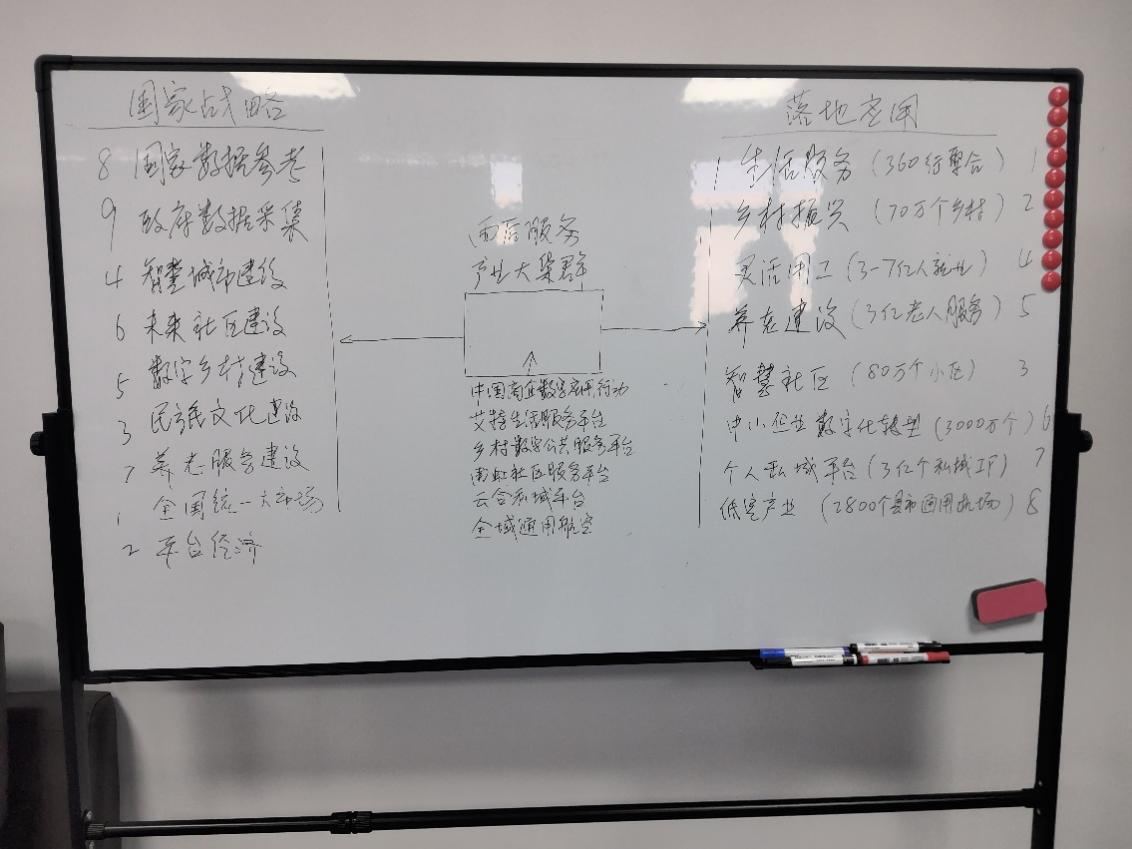 国家战略
8 国家数据参考
9 政府数据采集
4 智慧城市建设
6 未来社区建设
5 数字乡村建设
3 民族文化建设
7 养老服务建设
1 全国统一大市场
2 平台经济
服务
产业大集群
中国商企数字应用行动
艾特生活服务平台
乡村数字公共服务平台
社区服务平台
云合私域平台
全域通用航空
落地应用
生活服务(360行聚合) 1
乡村振兴(70万个乡村) 2
灵活用工(3-7亿人就业) 4
养老建设(3亿老人服务) 5
智慧社区(80万个小区) 3
中小企业数字化转型(3000万个) 6
个人私域平台(3亿个私域IP) 7
低空产业(2800个县市通用机场) 8